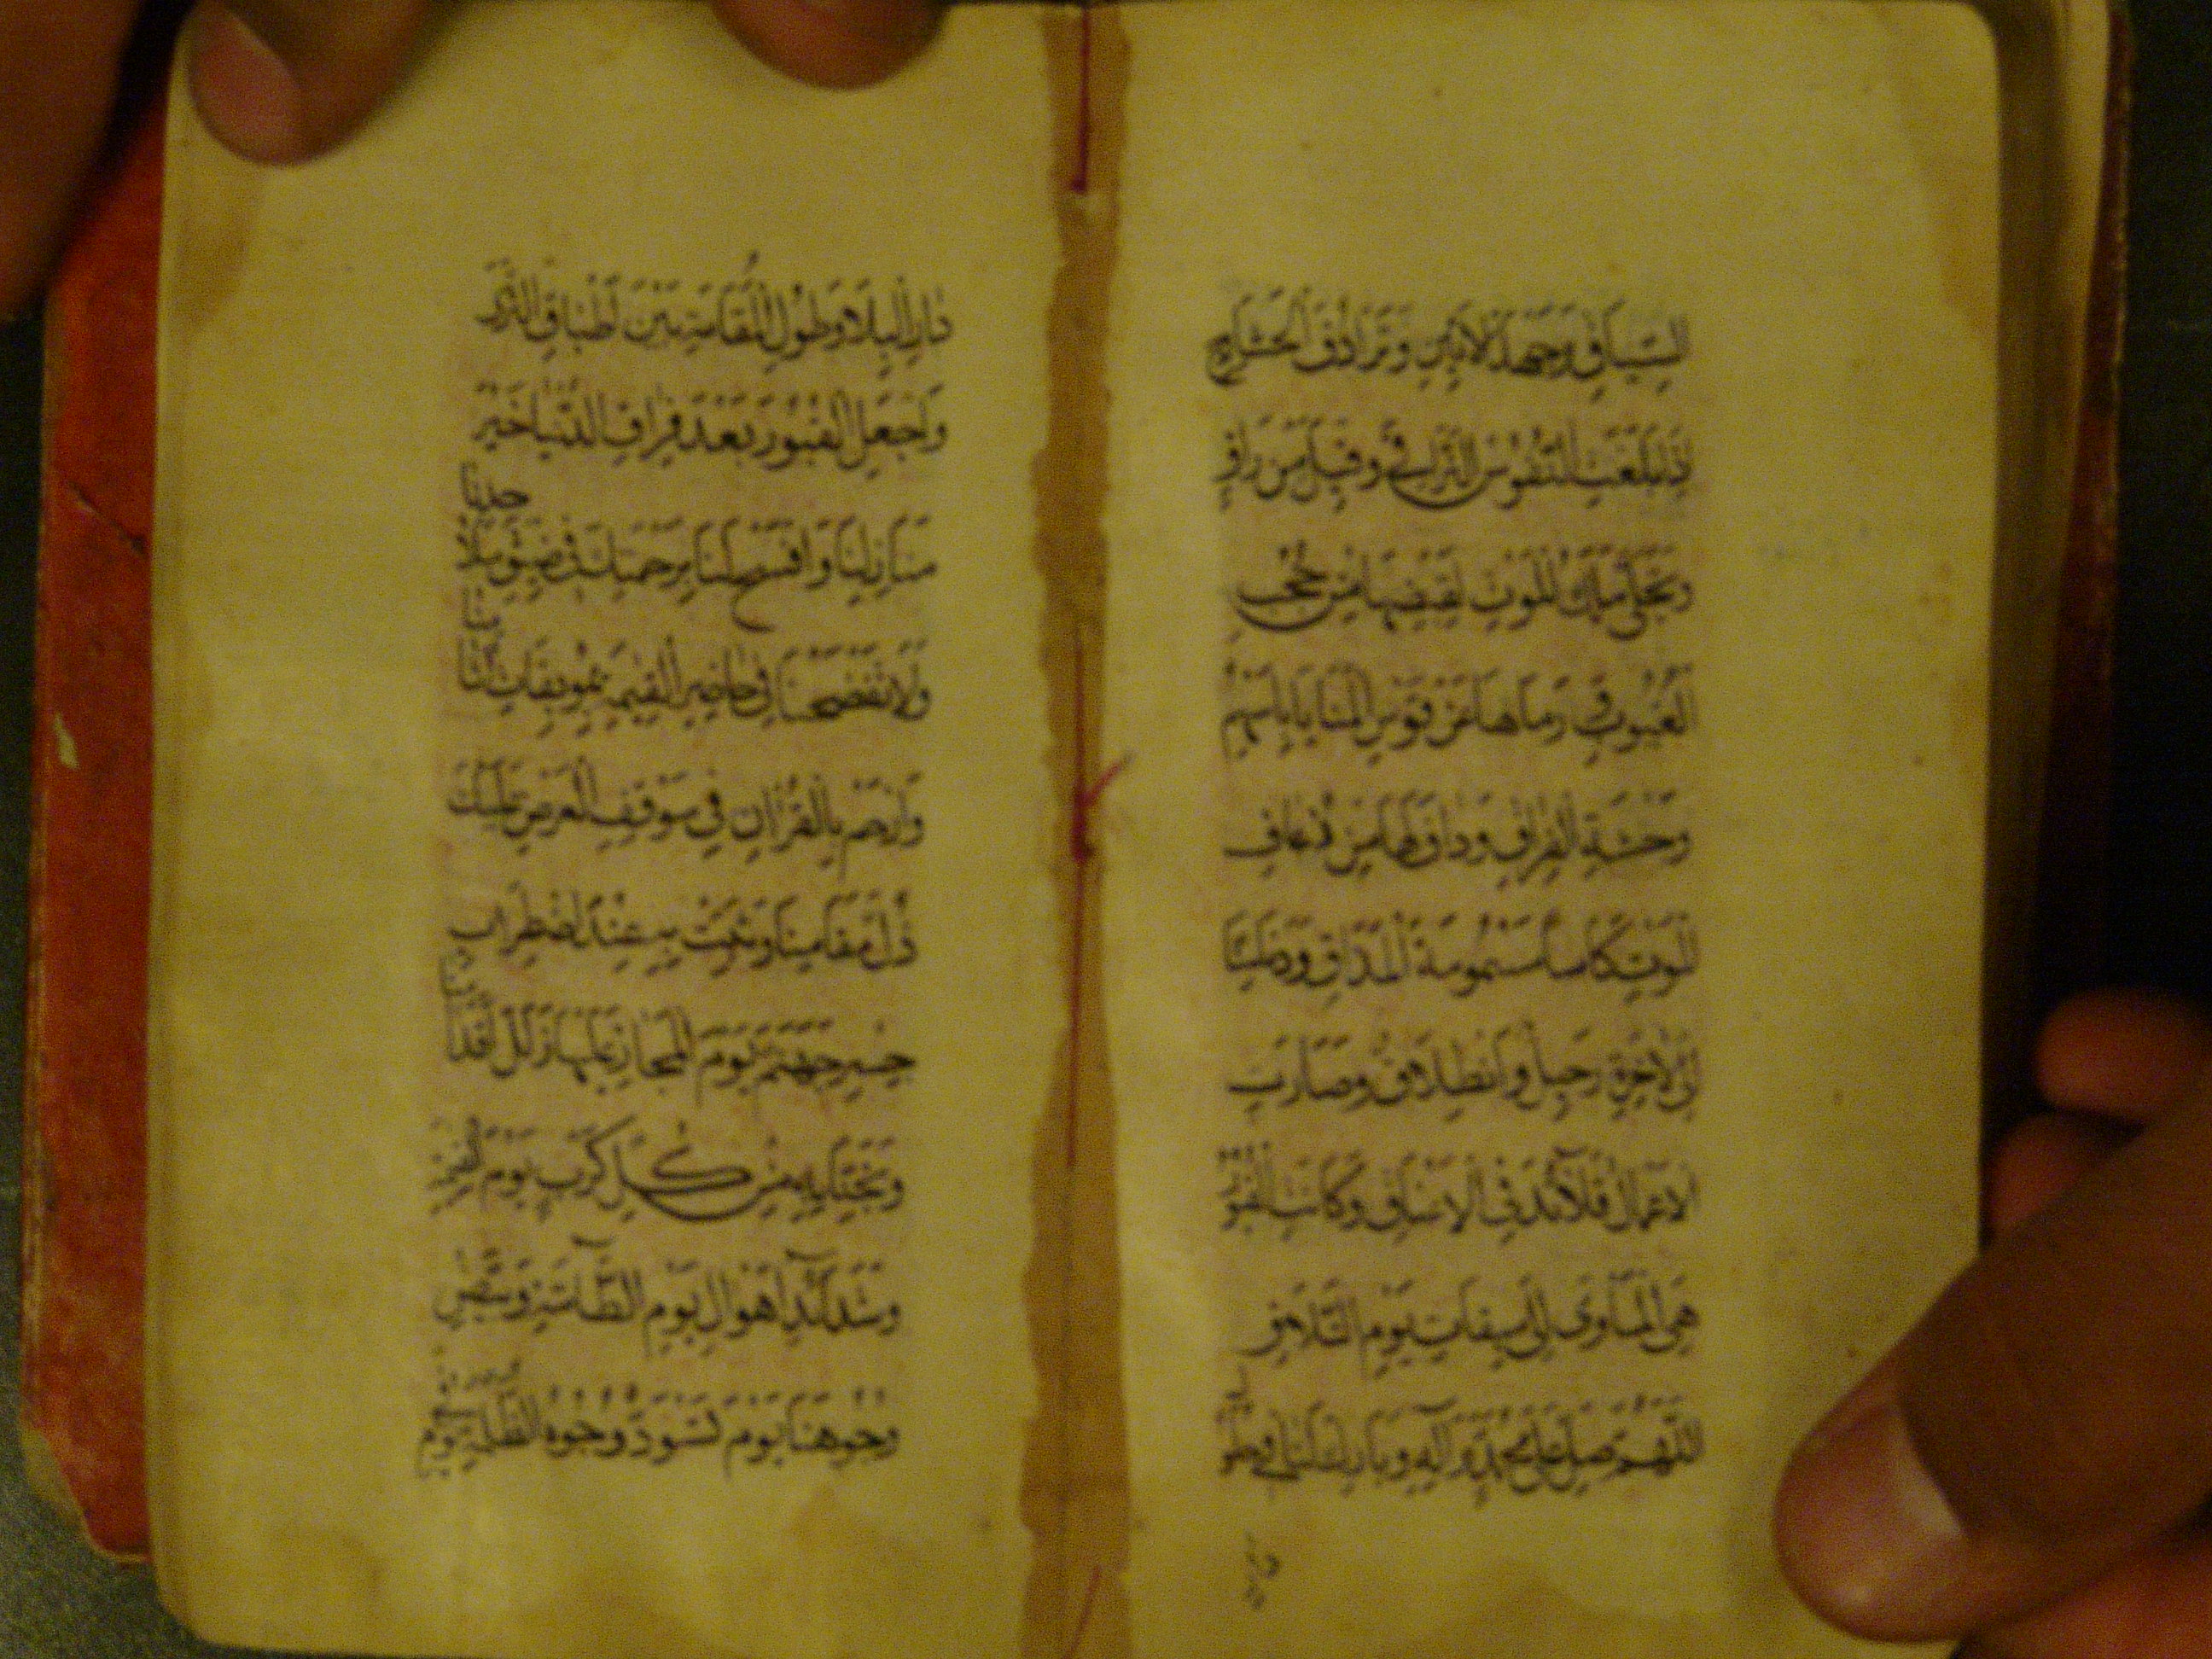 السِّيَاقِ وَجَهْدَ الْاَنِينِ وَتَرَادُفَ الْحَشَارِجِ
اِذَا بَلَغَتِ النُّفُوسُ التَّرَاقِيَ وَقِيلَ مَنْ رَاقٍ
وَتَجَلَّى مَلَكُ الْمَوْتِ لِقَبْضِهَا مِنْ حُجُبِ
الْغُيُوبِ وَرَمَاهَا عَنْ قَوْسِ الْمَنَايَا بِاَسْهُمِ
وَحْشَةِ الْفِرَاقِ وَدَافَ لَهَا مِنْ ذُعَافِ
الْمَوْتِ كَأْسًا مَسْمُومَةَ الْمَذَاقِ وَدَنَا مِنَّا
اِلَى الْاٰخِرَةِ رَحِيلٌ وَانْطِلَاقٌ وَصَارَتِ
الْاَعْمَالُ قَلَآئِدَ فِي الْاَعْنَاقِ وَكَانَتِ الْقُبُورُ
هِيَ الْمَأْوَى اِلَى مِيقَاتِ يَوْمِ التَّلَاقِ
اَللّٰهُمَّ صَلِّ عَلَى مُحَمَّدٍ وَآلِهِ وَبَارِكْ لَنَا فِي حُلُولِ
دَارِ الْبِلَا وَطُولِ الْمُقَامَةِ بَيْنَ اَطْبَاقِ الثَّرَى
وَاجْعَلِ الْقُبُورَ بَعْدَ فِرَاقِ الدُّنْيَا خَيْرَ
مَنَازِلِنَا وَافْسَحْ لَنَا بِرَحْمَتِكَ فِي ضِيقِ مَلَاحِدِنَا
وَلَا تَفْضَحْنَا فِي حَاضِرِ الْقِيٰمَةِ بِمُوبِقَاتِ اٰثَامِنَا
وَارْحَمْ بِالْقُرْاٰنِ فِي مَوْقِفِ الْعَرْضِ عَلَيْكَ
ذُلَّ مَقَامِنَا وَثَبِّتْ بِهِ عِنْدَ اضْطِرَابِ
جِسْرِ جَهَنَّمَ يَوْمَ الْمَجَازِ عَلَيْهَا زَلَلَ اَقْدَامِنَا
وَنَجِّنَا بِهِ مِنْ كُلِّ كَرْبٍ يَوْمَ الْقِيٰمَةِ
وَشَدَآئِدِ اَهْوَالِ يَوْمِ الطَّآمَّةِ وَبَيِّضْ
وُجُوهَنَا يَوْمَ تَسْوَدُّ وُجُوهُ الظَّلَمَةِ يَوْمَ